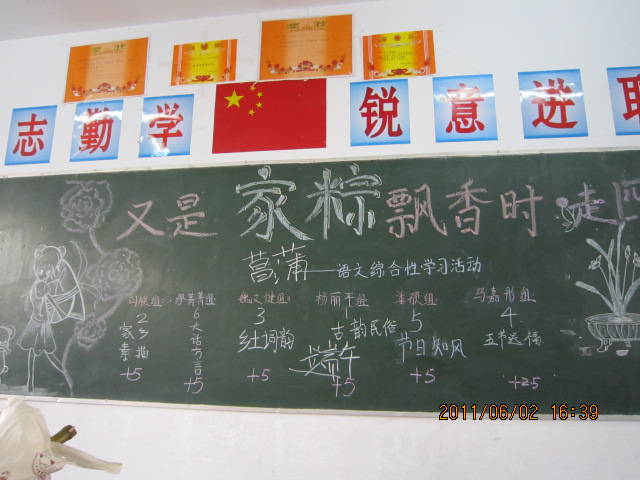 奖状
奖状
志 勤 学 锐 意 进
又是家粽飘香时 走
菖蒲——语文综合性学习活动
魏文健组: 杨丽平组 马嘉彤组
2 6 3 1 5 4
家乡素描 大话方言 红词韵 古韵民俗 节日知风 五节送福
端午
+5 +5 +5 +5 +5 +25
2011/06/02 16:39